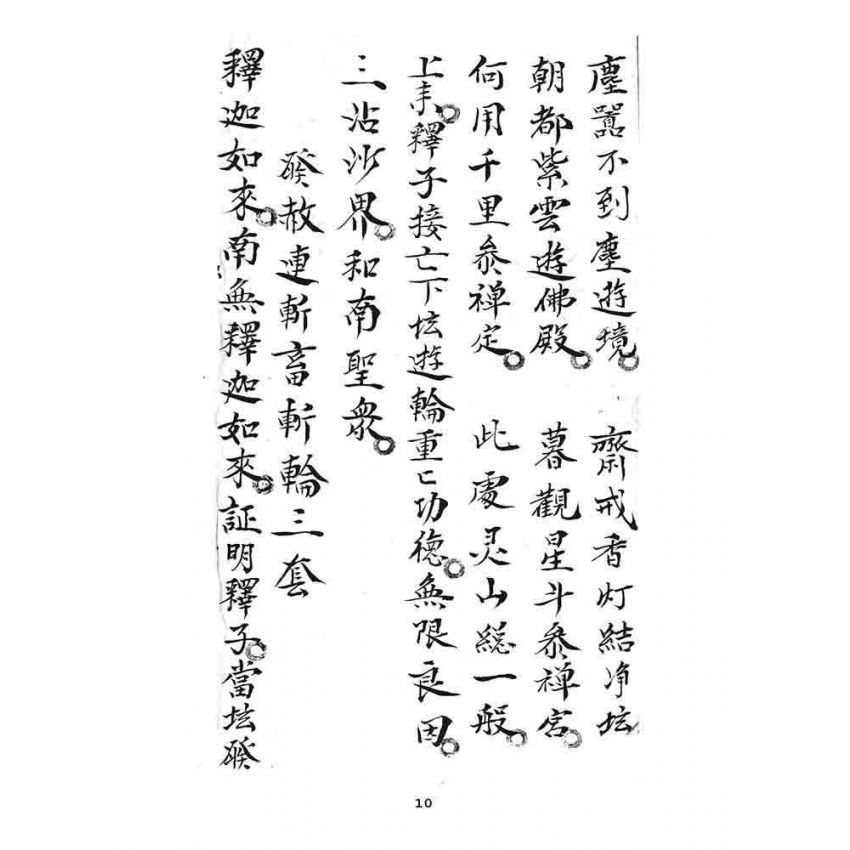 塵囂不到塵逰境 齋戒香灯結净坛
朝都紫雲逰佛殿 暮觀星斗叅禅宫
何用千里叅禅定 此處灵山総一般
上来釋子接亡下坛逰輪重亡功德無限良因
三沾沙界和南聖衆
發赦連斬畜斬輪三套
釋迦如來南無釋迦如來証明釋子當坛發
10